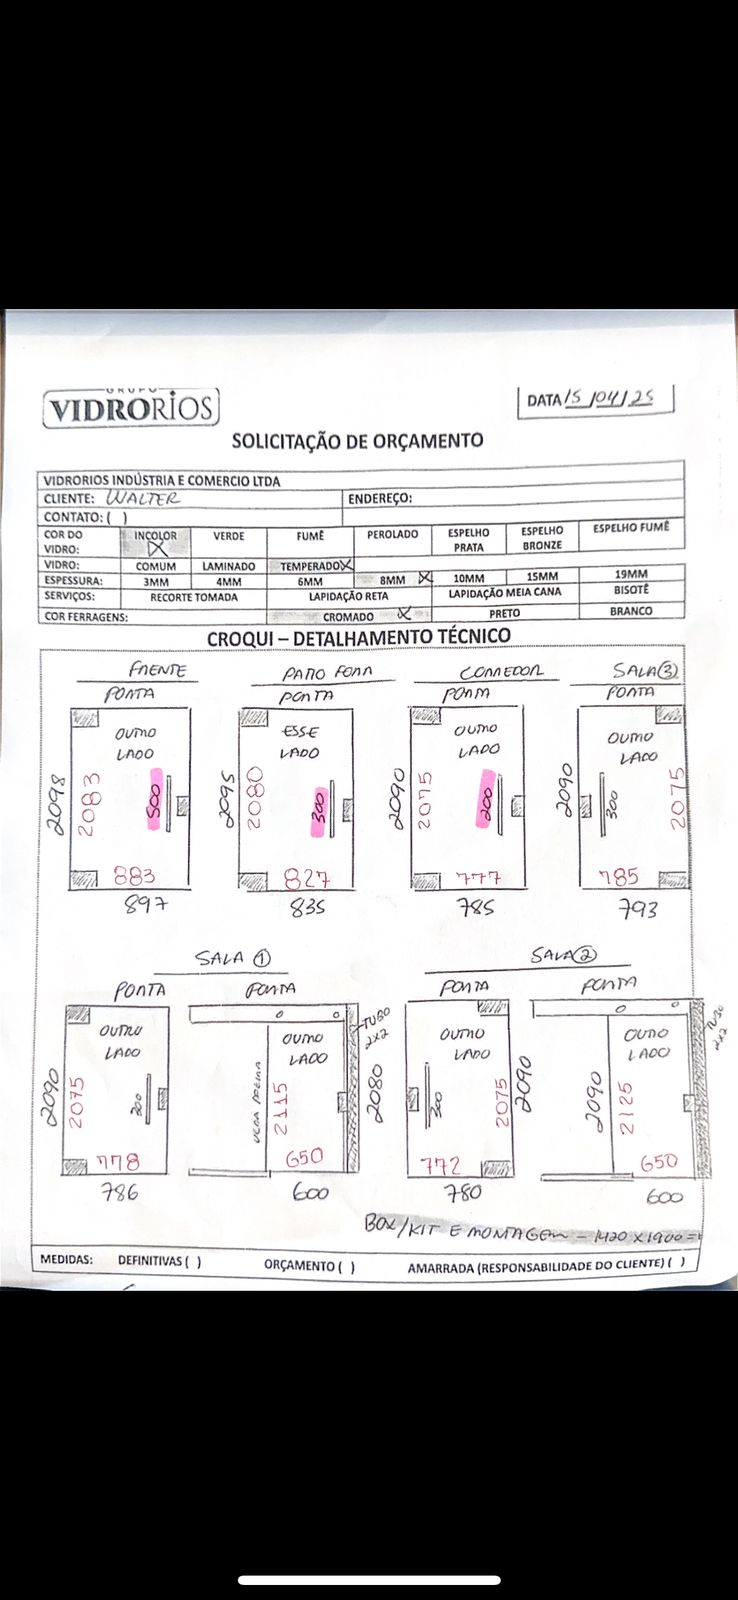 GRUPO
VIDRORIOS
DATA 15/04/25
SOLICITAÇÃO DE ORÇAMENTO
VIDRORIOS INDÚSTRIA E COMERCIO LTDA
CLIENTE: WALTER ENDEREÇO:
CONTATO: ( )
COR DO VIDRO: INCOLOR X VERDE FUMÊ PEROLADO ESPELHO PRATA ESPELHO BRONZE ESPELHO FUMÊ
VIDRO: COMUM LAMINADO TEMPERADO X
ESPESSURA: 3MM 4MM 6MM 8MM X 10MM 15MM 19MM
SERVIÇOS: RECORTE TOMADA LAPIDAÇÃO RETA LAPIDAÇÃO MEIA CANA BISOTÊ
COR FERRAGENS: CROMADO X PRETO BRANCO
CROQUI – DETALHAMENTO TÉCNICO
FRENTE PATIO FORA CORREDOR SALA 3
PORTA PORTA PORTA PORTA
OUTRO LADO ESSE LADO OUTRO LADO OUTRO LADO
2098 2083 500 2095 2080 300 2090 2075 200 2090 300 2075
883 827 777 785
897 835 785 793
SALA 1 SALA 2
PORTA PORTA PORTA PORTA
OUTRO LADO OUTRO LADO TUBO 2X2 OUTRO LADO OUTRO LADO TUBO 2X2
2090 2075 200 2115 2080 300 2075 2090 2090 2125
778 650 772 650
786 600 780 600
BOX/KIT E MONTAGEM – 1420 X 1900 =
MEDIDAS: DEFINITIVAS ( ) ORÇAMENTO ( ) AMARRADA (RESPONSABILIDADE DO CLIENTE) ( )